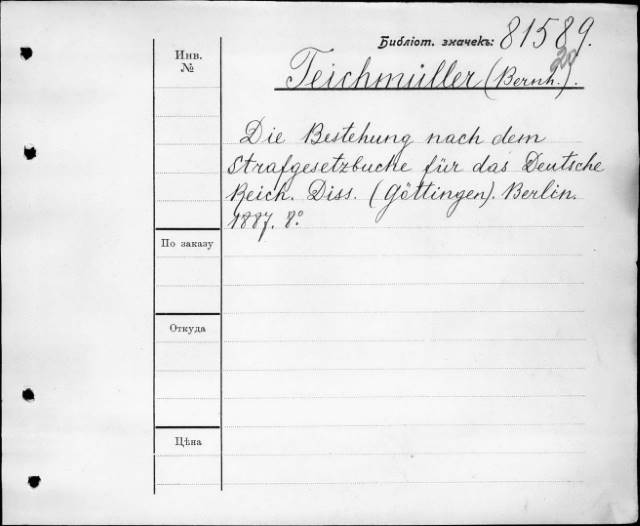 Библіот. значекъ: 81589.
20
Инв. №
Teichmüller (Bernh.).
Die Bestehung nach dem
Strafgesetzbuche für das Deutsche
Reich. Diss. (Göttingen). Berlin.
1887. 8º
По заказу
Откуда
Цѣна